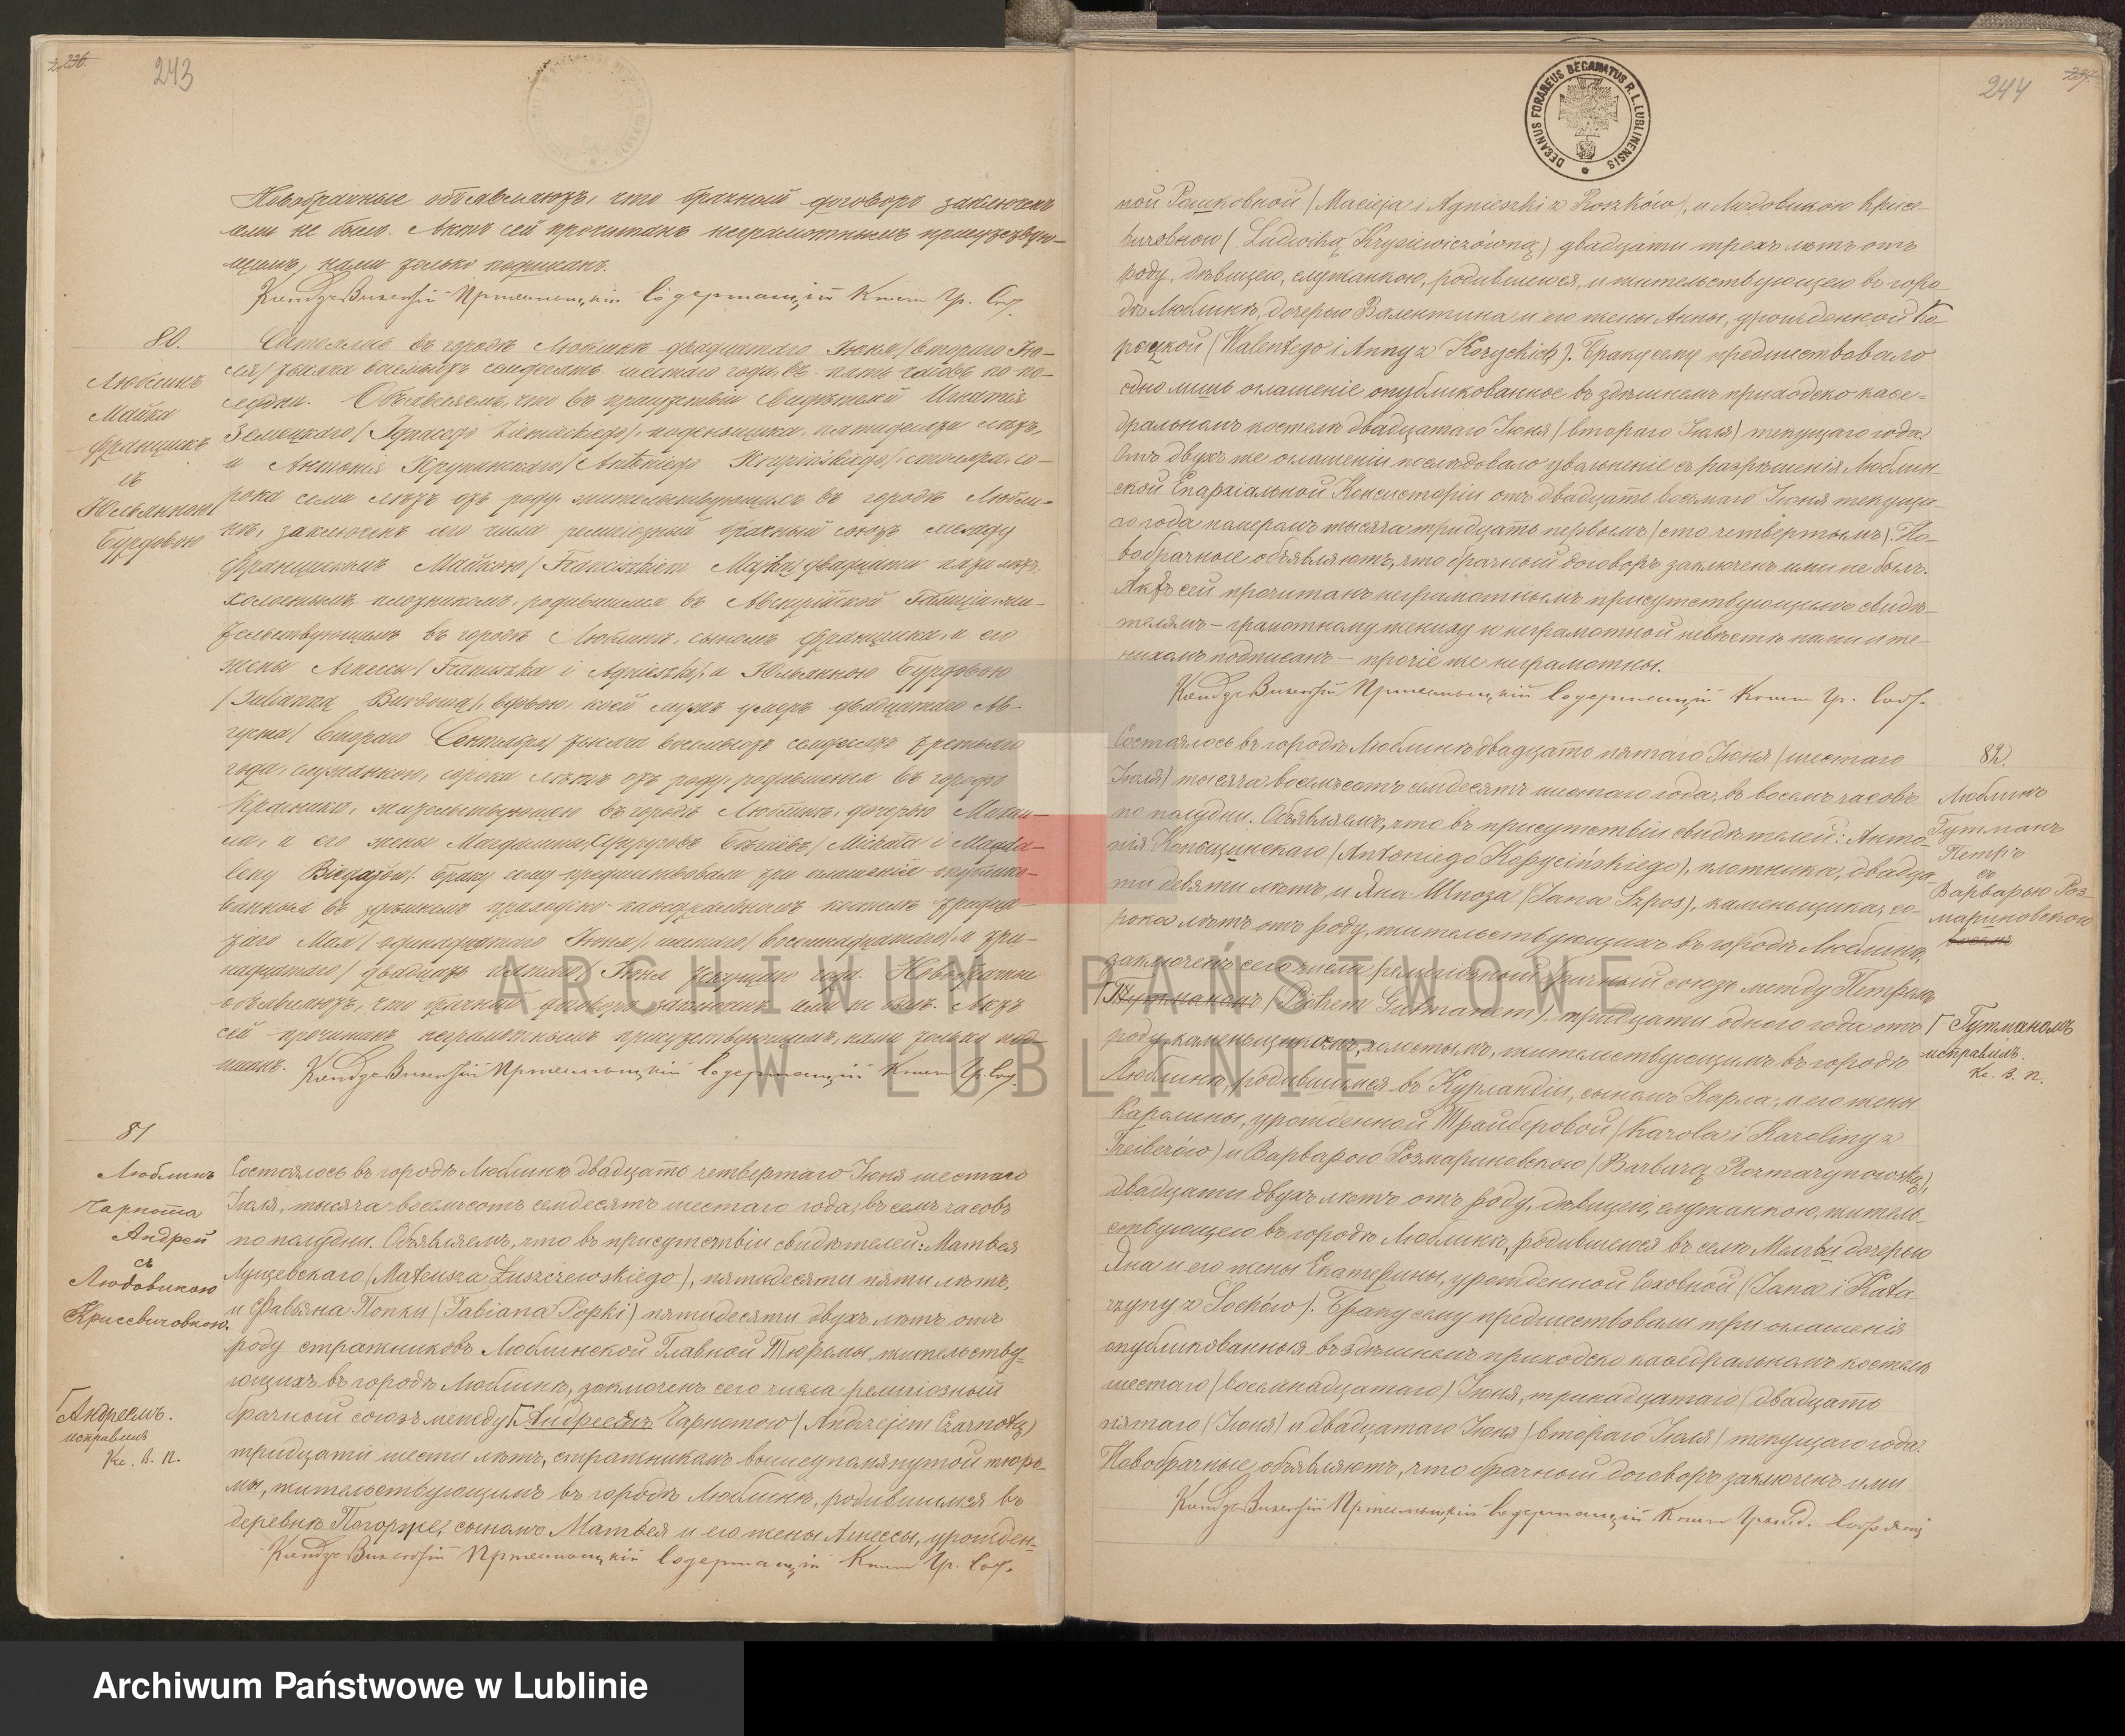 236.
243
Новобрачные объявляютъ, что брачный договоръ заключенъ
ими не былъ. Актъ сей прочитанъ неграмотнымъ присутствую-
щимъ, нами только подписанъ.
Ксендзъ Викентій Содержащій Акты Гр. Сост.
80.
Люблинъ
Майка
Францишекъ
съ
Юльянною
Бурдовою
Состоялось въ городѣ Люблинѣ двадцатаго Іюня/втораго Ію-
ля/ тысяча восемьсотъ семдесятъ шестаго года, въ пять часовъ по по-
лудни. Объявляемъ, что въ присутствіи свидѣтелей Игнатія
Земецкаго/Ignacego Ziemieckiego/, поденьщика, пятидесяти лѣтъ,
и Антонія Крупинскаго/Antoniego Krupińskiego/, столяра, со-
рока семи лѣтъ отъ роду, жительствующихъ въ городѣ Любли-
нѣ, заключенъ сего числа религіозный брачный союзъ между
Францишкомъ Майкою/Franciszkiem Majką/ двадцати пяти лѣтъ,
холостымъ, плотникомъ, родившимся въ Австрійской Галиціи, жи-
тельствующимъ въ городѣ Люблинѣ, сыномъ Францишка, и его
жены Агнессы/Franciszka i Agnieszki/, и Юльянною Бурдовою
/Julianną Burdową/, вдовою, коей мужъ умеръ двадцатаго Ав-
густа/ втораго Сентября/ тысяча восемьсотъ семдесятъ третьяго
года, служанкою, сорока лѣтъ отъ роду, родившеюся въ городѣ
Красникѣ, жительствующею въ городѣ Люблинѣ, дочерью Михаи-
ла, и его жены Магдалины, супруговъ /Michała i Magda-
leny Biegajów/. Браку сему предшествовали три оглашенія опублико-
ванныя въ здѣшнемъ приходско-каѳедральномъ костелѣ тридца-
таго Мая/ одинадцатаго Іюня/, шестаго/ восемнадцатаго/, и три-
надцатаго/ двадцать пятаго/ Іюня текущаго года. Новобрачные
объявляютъ, что брачный договоръ заключенъ ими не былъ. Актъ
сей прочитанъ неграмотнымъ присутствующимъ, нами только под-
писанъ. Ксендзъ Викентій Содержащій Акты Гр. Сост.
81
Люблинъ
Чарнота
Андрей
съ
Людовикою
Крисевичовною.
Состоялось въ городѣ Люблинѣ двадцать четвертаго Іюня шестаго
Іюля, тысяча восемьсотъ семдесятъ шестаго года, въ семь часовъ
по полудни. Объявляемъ, что въ присутствіи свидѣтелей: Матвея
Лущевскаго (Mateusza Łuszczewskiego), пятидесяти пяти лѣтъ,
и Фабьяна Попки (Fabiana Popki) пятидесяти двухъ лѣтъ отъ
роду стражниковъ Люблинской Главной Тюрьмы, жительству-
ющихъ въ городѣ Люблинѣ, заключенъ сего числа религіозный
брачный союзъ между Андреевъ Чарнотою (Andrzejem Czarnotą)
Андреемъ.
исправилъ
Кс. В. П.
тридцати шести лѣтъ, стражникомъ вышеупомянутой тюрь-
мы, жительствующимъ въ городѣ Люблинѣ, родившимся въ
деревнѣ Погорже, сыномъ Матвея и его жены Агнессы, урожден-
Ксендзъ Викентій Содержащій Акты Гр. Сост.
244
237.
DECANUS FORANEUS DECANATUS R. L. LUBLINENSIS
ной Рошковной (Macieja i Agnieszki z Roszków), и Людовикою Крисе-
вичовною (Ludwiką Krysiewiczówną) двадцати трехъ лѣтъ отъ
роду, дѣвицею, служанкою, родившеюся, и жительствующею въ горо-
дѣ Люблинѣ, дочерью Валентина и его жены Анны, урожденной Ко-
рыцкой (Walentego i Anny z Korychich). Браку сему предшествовало
одно лишь оглашеніе опубликованное въ здѣшнемъ приходско каѳе-
дральномъ костелѣ двадцатаго Іюня (втораго Іюля) текущаго года.
Отъ двухъ же оглашеній послѣдовало увольненіе съ разрѣшенія Люблин
ской Епархіальной Консисторіи отъ двадцать восьмаго Іюня текуща-
го года номеромъ тысяча тридцать первымъ (сто четвертымъ). Но-
вобрачные объявляютъ, что брачный договоръ заключенъ ими не былъ.
Актъ сей прочитанъ неграмотнымъ присутствующимъ свидѣ-
телямъ – грамотному жениху и неграмотной невѣстѣ нами и же-
нихомъ подписанъ – прочіе же неграмотны.
Ксендзъ Викентій Содержащій Акты Гр. Сост.
82.
Люблинъ
Гутманъ
Петръ
съ
Варварью Роз-
мариновскою
Состоялось въ городѣ Люблинѣ двадцать пятаго Іюня (шестаго
Іюля) тысяча восемьсотъ семдесятъ шестаго года, въ восемь часовъ
по полудни. Объявляемъ, что въ присутствіи свидѣтелей: Анто-
нія Копыцинскаго (Antoniego Kopycińskiego), плотника, двадца-
ти девяти лѣтъ, и Яна Шпоза (Jana Szpos), каменьщика, со-
рока лѣтъ отъ роду, жительствующихъ въ городѣ Люблинѣ,
заключенъ сего числа религіозный брачный союзъ между Петромъ
Гутманомъ (Piotrem Gutmanem), тридцати одного года отъ
Гутманомъ
исправилъ.
Кс. В. П.
роду, каменьщикомъ, холостымъ, жительствующимъ въ городѣ
Люблинѣ, родившимся въ Курляндіи, сыномъ Карла, и его жены
Каролины, урожденной Трайберовой (Karola i Karoliny z
Treiberów) и Варварою Розмариновскою (Barbarą Rozmarynowską),
двадцати двухъ лѣтъ отъ роду, дѣвицею, служанкою, житель-
ствующею въ городѣ Люблинѣ, родившеюся въ селѣ Мелгви дочерью
Яна и его жены Екатерины, урожденной Соховной (Jana i Kata-
rzyny z Sochów). Браку сему предшествовали три оглашенія
опубликованныя въ здѣшнемъ приходско каѳедральномъ костелѣ
шестаго (восемнадцатаго) Іюня, тринадцатаго (двадцать
пятаго (Іюня) и двадцатаго Іюня (втораго Іюля) текущаго года.
Новобрачные объявляютъ, что брачный договоръ заключенъ ими
Ксендзъ Викентій Содержащій Акты Гражд. Состоянія
ARCHIWUM PAŃSTWOWE
W LUBLINIE
Archiwum Państwowe w Lublinie